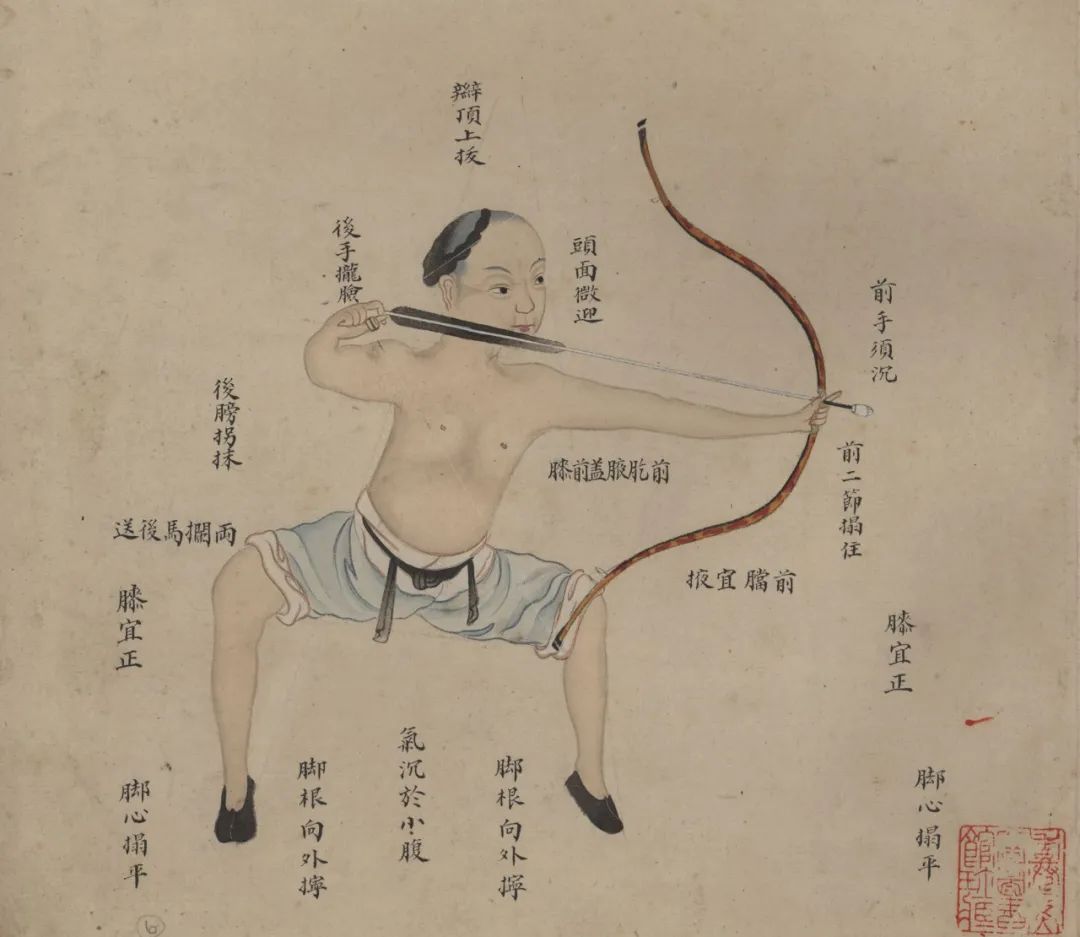 辮頂上拔
頭面微迎
後手攏臉
前手須沉
後膀拐抹
前二節搨住
前肐腋盖前膝
兩擱馬後送
前膽宜掖
膝宜正
膝宜正
脚心搨平
脚根向外擰
氣沉於小腹
脚根向外擰
脚心搨平
6